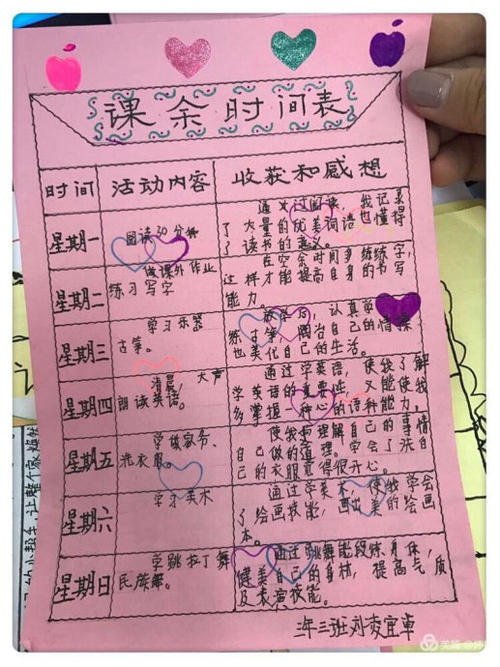 课余时间表
时间 活动内容 收获和感想
星期一
阅读30分钟
通过阅读，我记录
了大量的优美词语也懂得
了读书的意义。
星期二
做课外作业
练习写字
在空余时间多练练字，
这样才能提高自身的书写
能力。
星期三
学习乐器
古筝。
认真学
练古筝，陶冶自己的情操
也美化自己的生活。
星期四
清晨，大声
朗读英语。
通过学英语，使我了解
学英语的重要性，又能使我
多掌握一种心的语种能力。
星期五
学做家务、
洗衣服。
使我何理解自己的事情
自己做的道理。学会了洗自
己的衣服觉得很开心。
星期六
学习美术
通过学美术，使我学会
了绘画技能，画出美的绘画
本。
星期日
学跳拉丁舞
民族舞。
通过跳舞能段炼身体，
健美自己的身材，提高气质
及表演技能。
三年三班刘
让整个家焕然
美篇